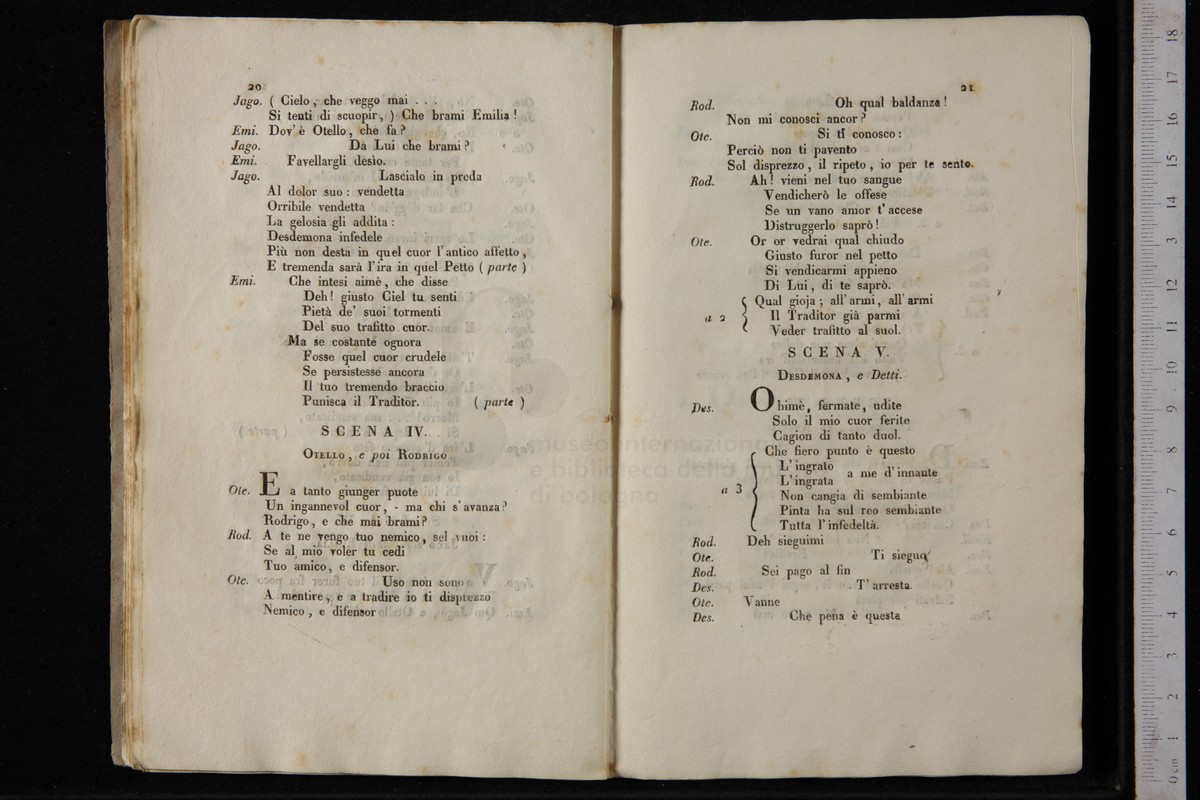 20
Jago. ( Cielo, che veggo mai . . .
Si tenti di scuopir, ) Che brami Emilia !
Emi. Dov' è Otello, che fa ?
Jago. Da Lui che brami ?
Emi. Favellargli desìo.
Jago. Lascialo in preda
Al dolor suo : vendetta
Orribile vendetta
La gelosia gli addita :
Desdemona infedele
Più non desta in quel cuor l'antico affetto ,
E tremenda sarà l'ira in quel Petto ( parte )
Emi. Che intesi aimè, che disse
Deh! giusto Ciel tu senti
Pietà de' suoi tormenti
Del suo trafitto cuor.
Ma se costante ognora
Fosse quel cuor crudele
Se persistesse ancora
Il tuo tremendo braccio
Punisca il Traditor. ( parte )
SCENA IV.
OTELLO , e poi RODRIGO
Ote. E a tanto giunger puote
Un ingannevol cuor, - ma chi s' avanza ?
Rodrigo, e che mai brami?
Rod. A te ne vengo tuo nemico, sel vuoi :
Se al mio voler tu cedi
Tuo amico, e difensor.
Ote. Uso non sono
A mentire, e a tradire io ti disprezzo
Nemico , e difensor
21
Rod. Oh qual baldanza !
Non mi conosci ancor ?
Ote. Si ti conosco :
Perciò non ti pavento
Sol disprezzo , il ripeto , io per te sento.
Rod. Ah ! vieni nel tuo sangue
Vendicherò le offese
Se un vano amor t' accese
Distruggerlo saprò !
Ote. Or or vedrai qual chiudo
Giusto furor nel petto
Si vendicarmi appieno
Di Lui, di te saprò.
a 2 Qual gioja ; all' armi, all' armi
Il Traditor già parmi
Veder trafitto al suol.
SCENA V.
DESDEMONA , e Detti.
Des. Ohimè, fermate, udite
Solo il mio cuor ferite
Cagion di tanto duol.
a 3 Che fiero punto è questo
L' ingrato
L' ingrata a me d' innante
Non cangia di sembiante
Pinta ha sul reo sembiante
Tutta l' infedeltà.
Rod. Deh sieguimi
Ote. Ti sieguo
Rod. Sei pago al fin
Des. T' arresta.
Ote. Vanne
Des. Che pena è questa
museo internazionale
e biblioteca della musica
di bologna
0 cm 1 2 3 4 5 6 7 8 9 10 11 12 13 14 15 16 17 18